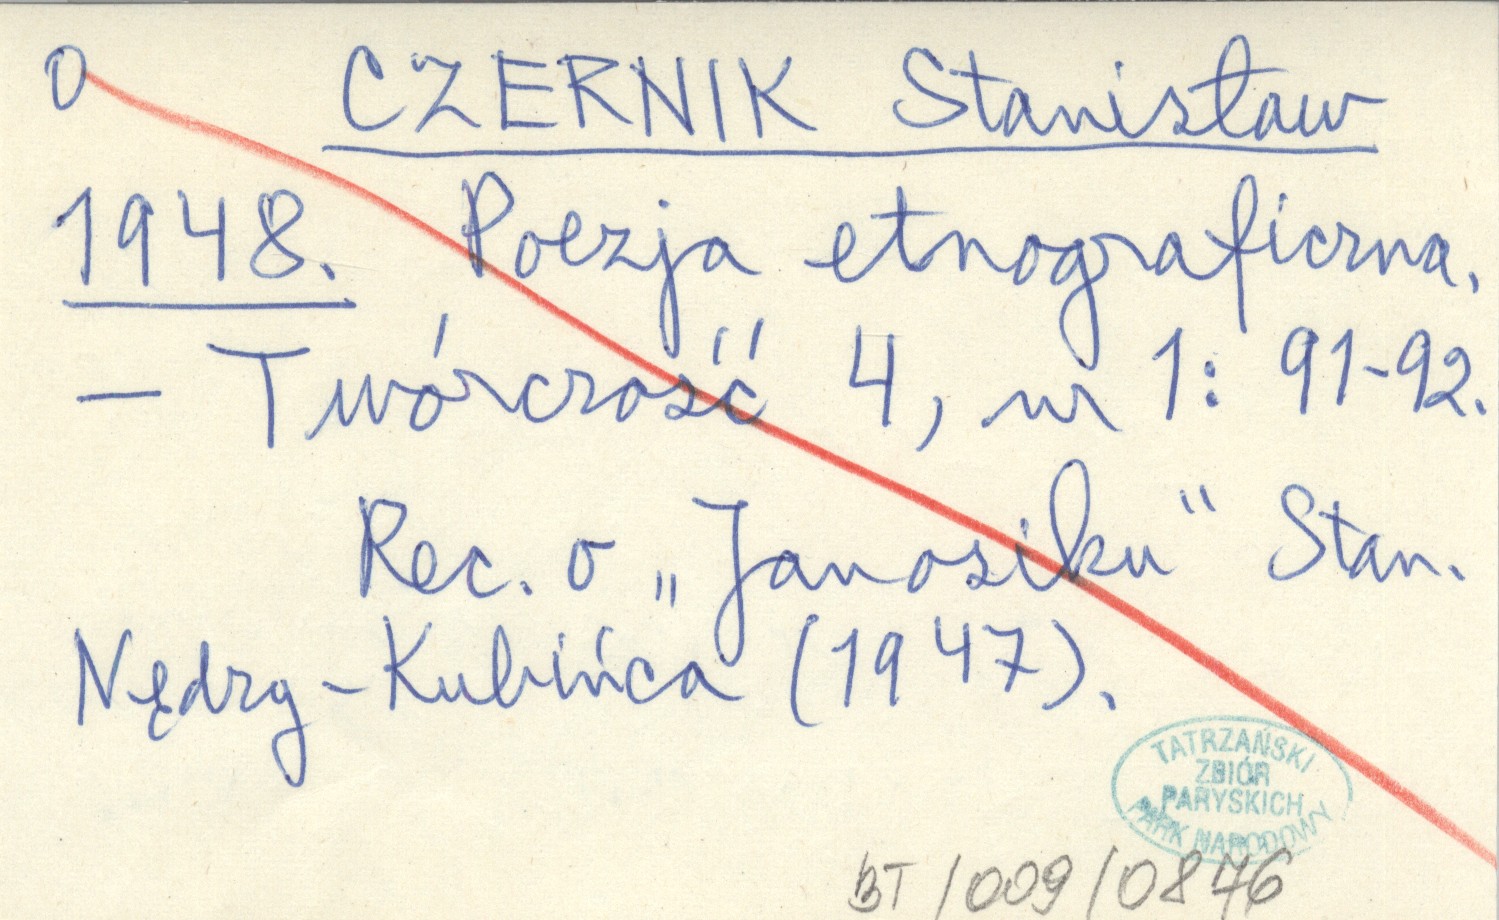 O CZERNIK Stanisław
1948. Poezja etnograficzna.
— Twórczość 4, nr 1: 91-92.
Rec. o „Janosiku" Stan.
Nędzy-Kubińca (1947).
TATRZAŃSKI
ZBIÓR
PARYSKICH
PARK NARODOWY
BT/009/0876